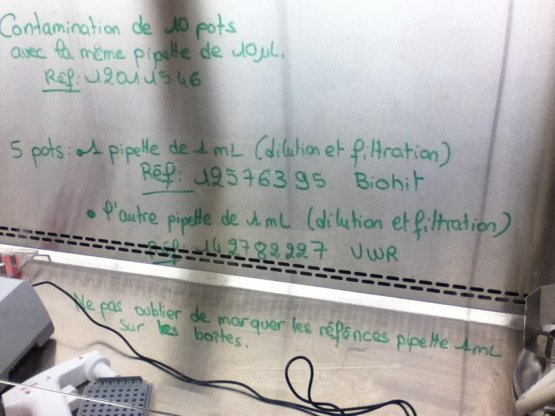 Contamination de 10 pots
avec la même pipette de 10µL.
Réf: 12011546
5 pots: 1 pipette de 1 mL (dilution et filtration)
Réf: 12576395 Biohit
• l'autre pipette de 1 mL (dilution et filtration)
Réf: 149782227 VWR
Ne pas oublier de marquer les réfénces pipette 1mL
sur les boîtes.